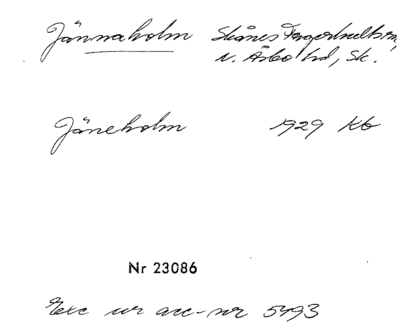 Jännaholm Skånes Fagerhults sn,
N. Åsbo hd, Sk.
Jäneholm 1929 Kb
Nr 23086
Exc ur acc-nr 5493